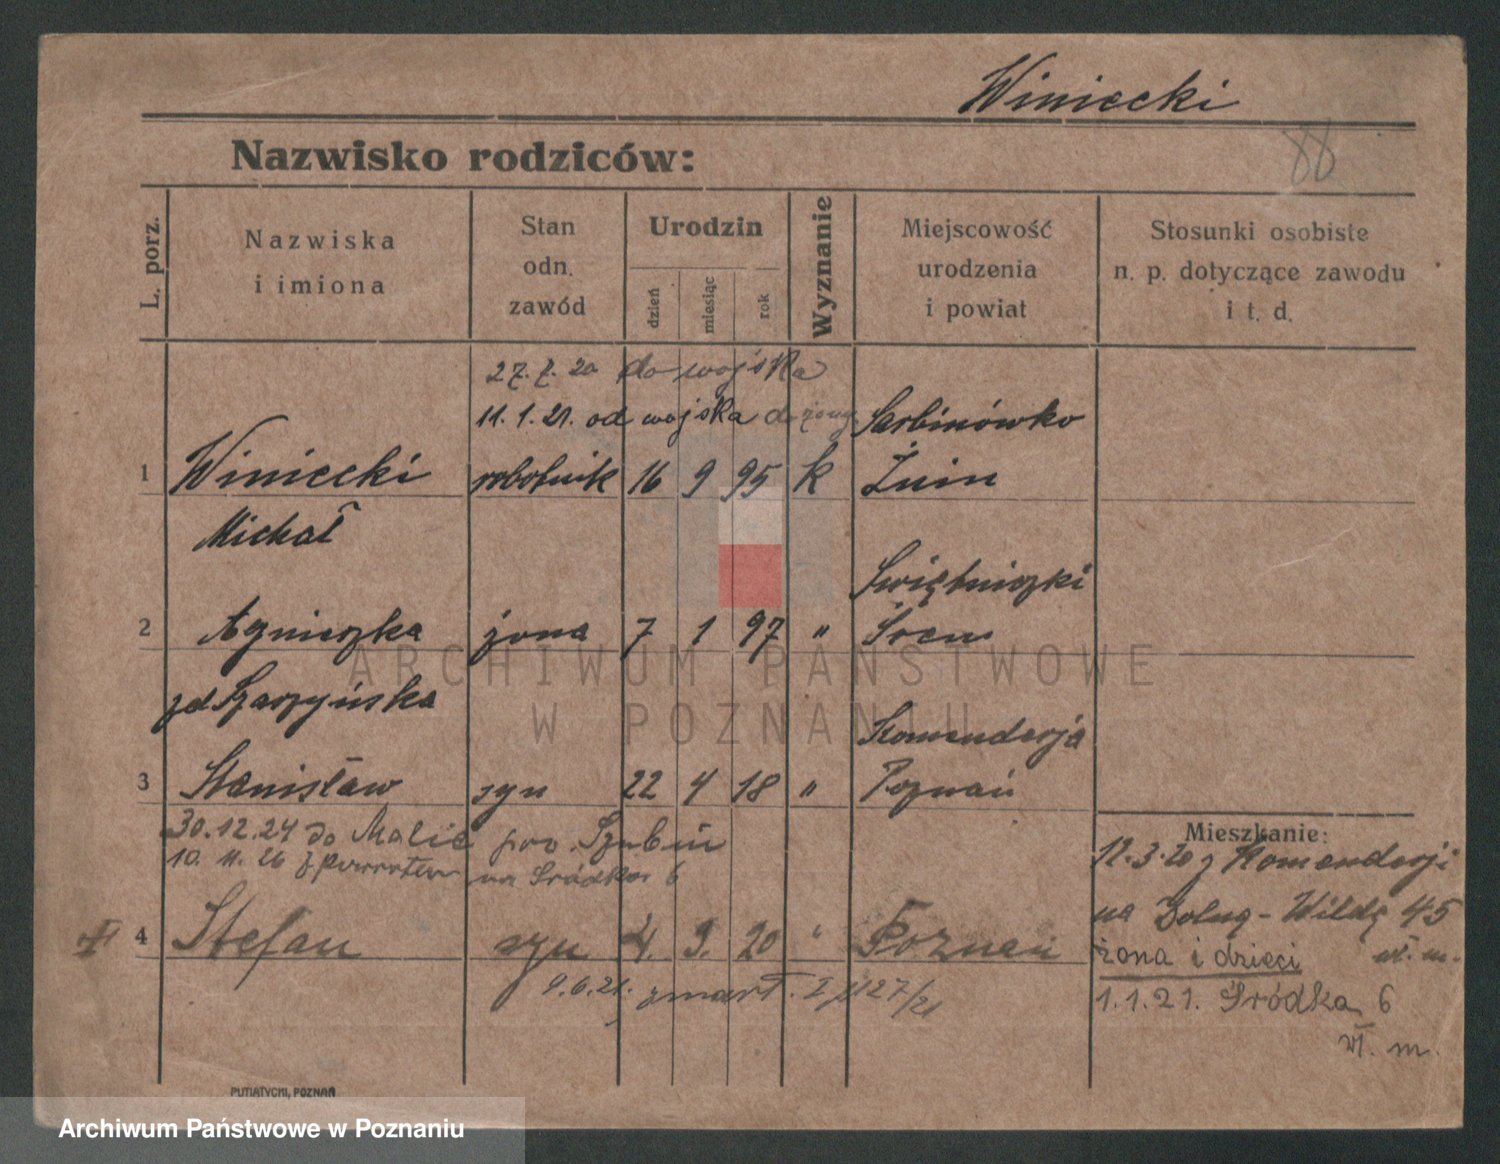 Winiecki
88
Nazwisko rodziców:
L. porz.
Nazwiska
i imiona
Stan
odn.
zawód
Urodzin
dzień
miesiąc
rok
Wyznanie
Miejscowość
urodzenia
i powiat
Stosunki osobiste
n. p. dotyczące zawodu
i t. d.
27. 7. 20 do wojska
11. 1. 21. od wojska do żony
Sarbinówko
1 Winiecki robotnik 16 9 95 k Żnin
Michał
Świętniczki
2 Agnieszka żona 7 1 97 " Śrem
zd Szaszyńska
Komenderja
3 Stanisław syn 22 4 18 " Poznań
30.12.24 do Malic pow. Szubin
10. 11. 26 z powrotem na Śródka 6
4 Stefan syn 4. 9. 20 " Poznań
9.6.21. zmarł. I 1127/21
Mieszkanie:
12.3.20 z Komenderji
na Dolną-Wildę 45
żona i dzieci wł. m.
1.1.21. Śródka 6
wł. m.
PUTIATYCKI, POZNAŃ
ARCHIWUM PAŃSTWOWE
W POZNANIU
Archiwum Państwowe w Poznaniu